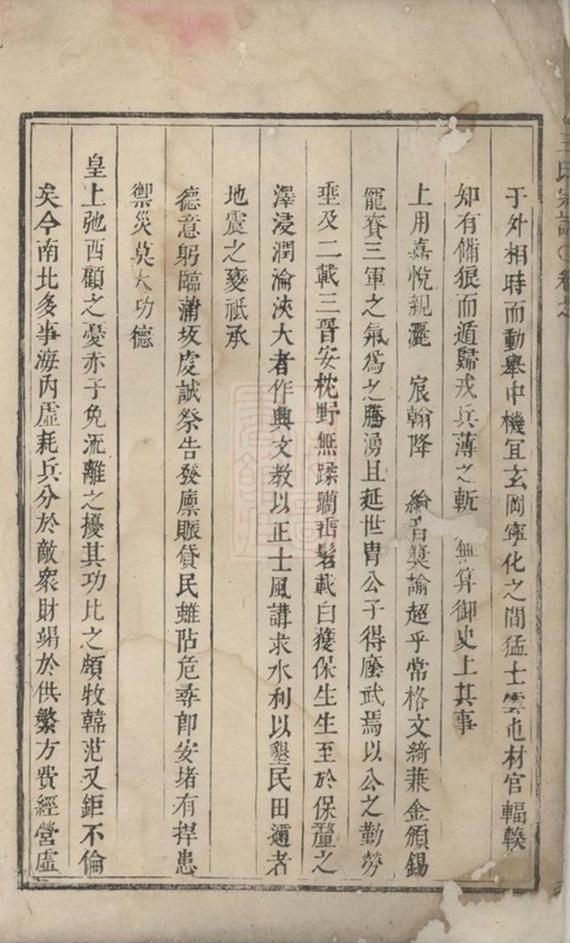 王氏宗譜 卷之
于外相時而動舉中機宜玄岡寧化之間猛士雲屯材官輻輳
知有備狠而遁歸戎兵薄之斬 無算御史上其事
上用嘉悅親灑 宸翰降 綸音奬諭超乎常格文綺兼金頒錫
寵賚三軍之氣爲之騰湧且延世胄公子得廕武焉以公之勤勞
垂及二載三晉安枕野無蹂躪垂髫載白獲保生生至於保釐之
澤浸潤淪浹大者作興文教以正士風講求水利以墾民田邇者
地震之變祇承
德意躬臨蒲坂虔誠祭告發廪賑貸民雖阽危尋卽安堵有捍患
禦災莫大功德
皇上弛西顧之憂赤子免流離之擾其功比之頗牧韓范又鉅不倫
矣今南北多事海內虛耗兵分於敵衆財竭於供繁方費經營虛